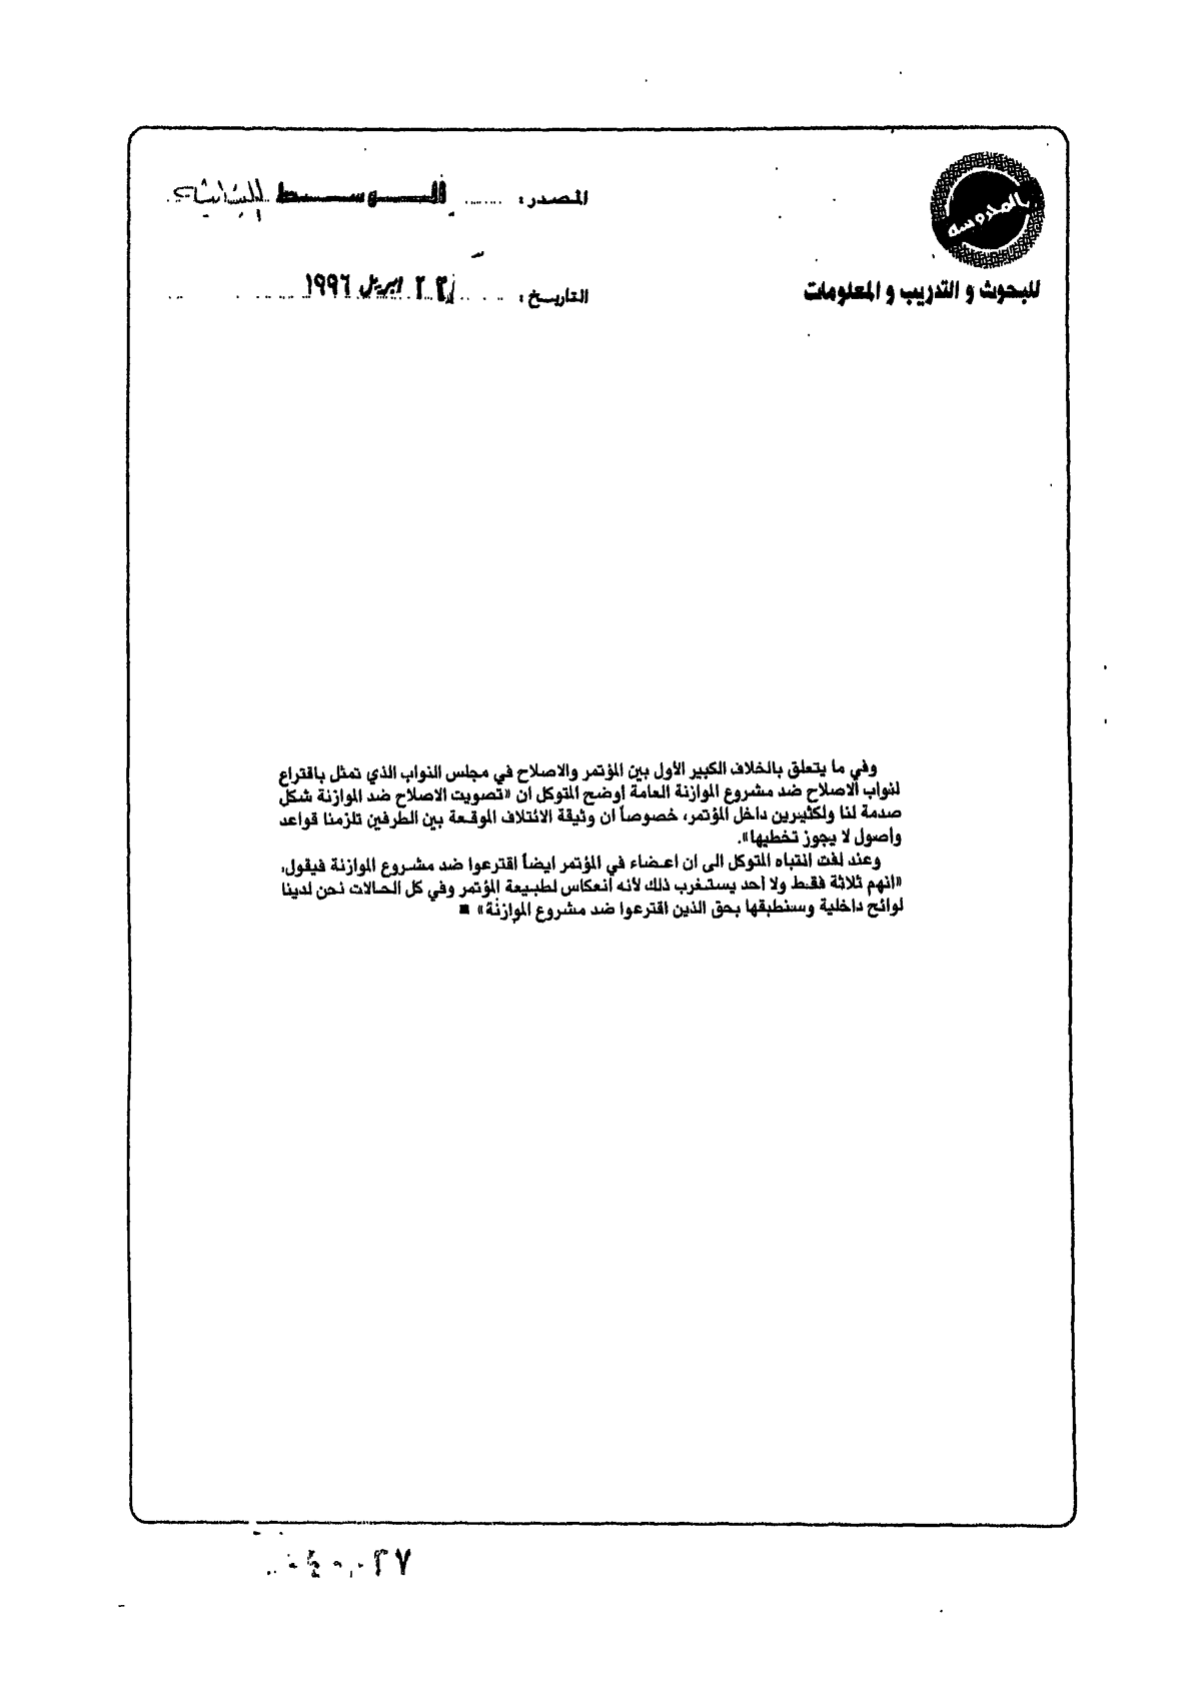 المحروسه
للبحوث و التدريب و المعلومات
المصدر : الوسط اللبنانية
التاريخ : ٢٢ ابريل ١٩٩٦
وفي ما يتعلق بالخلاف الكبير الأول بين المؤتمر والاصلاح في مجلس النواب الذي تمثل باقتراع
لنواب الاصلاح ضد مشروع الموازنة العامة اوضح المتوكل ان «تصويت الاصلاح ضد الموازنة شكل
صدمة لنا ولكثيرين داخل المؤتمر، خصوصاً ان وثيقة الائتلاف الموقعة بين الطرفين تلزمنا قواعد
واصول لا يجوز تخطيها».
وعند لفت انتباه المتوكل الى ان اعضاء في المؤتمر ايضاً اقترعوا ضد مشروع الموازنة فيقول،
«انهم ثلاثة فقط ولا أحد يستغرب ذلك لأنه انعكاس لطبيعة المؤتمر وفي كل الحالات نحن لدينا
لوائح داخلية وسنطبقها بحق الذين اقترعوا ضد مشروع الموازنة» ■